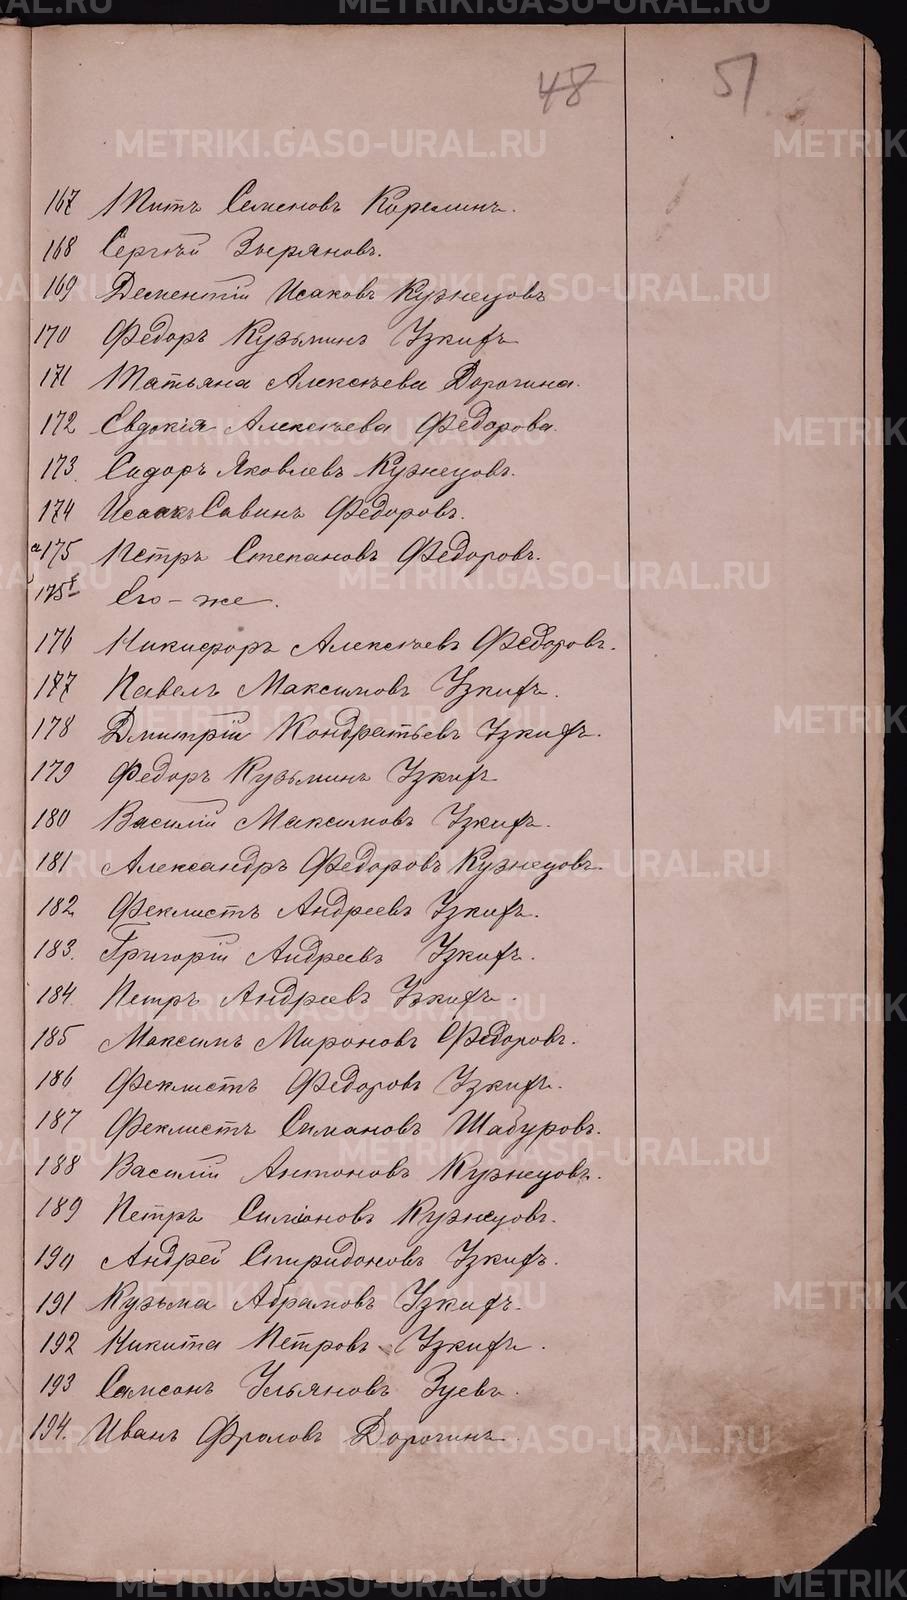 48 51
167 Титъ Семеновъ Корелинъ.
168 Сергѣй Зыряновъ.
169 Дементій Исаковъ Кузнецовъ
170 Федоръ Кузьминъ Узкихъ
171 Татьяна Алексѣева Дорогина.
172 Евдокія Алексѣева Федорова.
173. Сидоръ Яковлевъ Кузнецовъ.
174 Исаакъ Савинъ Федоровъ.
а175 Петръ Степановъ Федоровъ.
175б Его-же.
176 Никифоръ Алексѣевъ Федоровъ.
177 Павелъ Максимовъ Узкихъ.
178 Дмитрій Кондратьевъ Узкихъ.
179 Федоръ Кузьминъ Узкихъ
180 Василій Максимовъ Узкихъ.
181 Александръ Федоровъ Кузнецовъ.
182 Феклистъ Андреевъ Узкихъ.
183. Григорій Андреевъ Узкихъ.
184. Петръ Андреевъ Узкихъ.
185 Максимъ Мироновъ Федоровъ.
186 Феклистъ Федоровъ Узкихъ.
187 Феклистъ Симановъ Шабуровъ.
188 Василій Антоновъ Кузнецовъ.
189 Петръ Симоновъ Кузнецовъ.
190 Андрей Спиридоновъ Узкихъ.
191 Кузьма Абрамовъ Узкихъ.
192 Никита Петровъ Узкихъ.
193 Самсонъ Ульяновъ Зуевъ.
194. Иванъ Фроловъ Дорогинъ.
METRIKI.GASO-URAL.RU